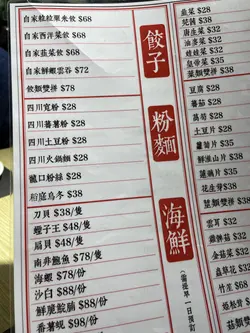 自家粒粒粟米餃 $68
自家西洋菜餃 $68
自家韮菜餃 $68
自家鮮蝦雲吞 $72
餃類雙拼 $78
餃子
四川寬粉 $28
四川蕃薯粉 $28
四川土豆粉 $28
四川火鍋麵 $28
龍口粉絲 $28
稻庭烏冬 $38
粉麵
刀貝 $38/隻
象子王 $48/隻
扇貝 $48/隻
南非鮑魚 $78/隻
海蝦 $78/份
沙白 $88/份
鮮脆鯇腩 $88/份
番薯蜆 $98/份
海鮮
韭菜 $28
芫茜 $38
唐生菜 $28
油麥菜 $32
娃娃菜 $32
皇帝菜 $35
菜類雙拼 $38
豆腐 $28
蕃茄 $28
萵筍 $28
土豆片 $28
蘿蔔片 $35
鮮淮山片 $38
蓮藕片 $38
花生芽 $38
$38
雲耳 $32
$32
金菇菜 $38
$38
竹笙 $68